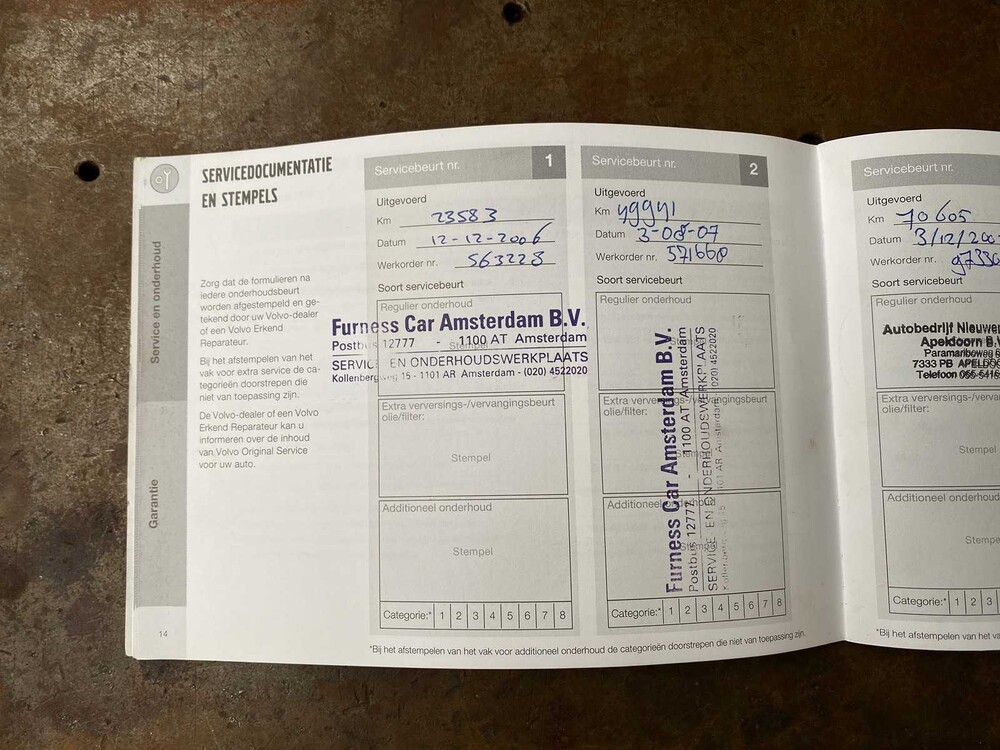 SERVICEDOCUMENTATIE
EN STEMPELS
Service en onderhoud
Garantie
Zorg dat de formulieren na
iedere onderhoudsbeurt
worden afgestempeld en ge-
tekend door uw Volvo-dealer
of een Volvo Erkend
Reparateur.
Bij het afstempelen van het
vak voor extra service de ca-
tegorieën doorstrepen die
niet van toepassing zijn.
De Volvo-dealer of een Volvo
Erkend Reparateur kan u
informeren over de inhoud
van Volvo Original Service
voor uw auto.
14
Servicebeurt nr. 1
Uitgevoerd
Km 23583
Datum 12-12-2006
Werkorder nr. 563228
Soort servicebeurt
Regulier onderhoud
Stempel
Furness Car Amsterdam B.V.
Postbus 12777 - 1100 AT Amsterdam
SERVICE EN ONDERHOUDSWERKPLAATS
Kollenbergweg 15 - 1101 AR Amsterdam - (020) 4522020
Extra verversings-/vervangingsbeurt
olie/filter:
Stempel
Additioneel onderhoud
Stempel
Categorie:* 1 2 3 4 5 6 7 8
Servicebeurt nr. 2
Uitgevoerd
Km
Datum 3-08-07
Werkorder nr. 571660
Soort servicebeurt
Regulier onderhoud
Extra verversings-/vervangingsbeurt
olie/filter:
Stempel
Additioneel onderhoud
Stempel
Furness Car Amsterdam B.V.
Postbus 12777 - 1100 AT Amsterdam
SERVICE EN ONDERHOUDSWERKPLAATS
15 1101 AR Amsterdam (020) 4522020
Categorie:* 1 2 3 4 5 6 7 8
*Bij het afstempelen van het vak voor additioneel onderhoud de categorieën doorstrepen die niet van toepassing zijn.
Servicebeurt nr.
Uitgevoerd
Km 70605
Datum 3/12/200
Werkorder nr.
Soort servicebeurt
Regulier onderhoud
Autobedrijf Nieuwe
Apeldoorn B.V
Paramariboweg
7333 PB APELDO
Telefoon 055-5416
Extra verversings-/vervan
olie/filter:
Stempel
Additioneel onderhoud
Stempe
Categorie:* 1 2 3
*Bij het afstempelen van het va